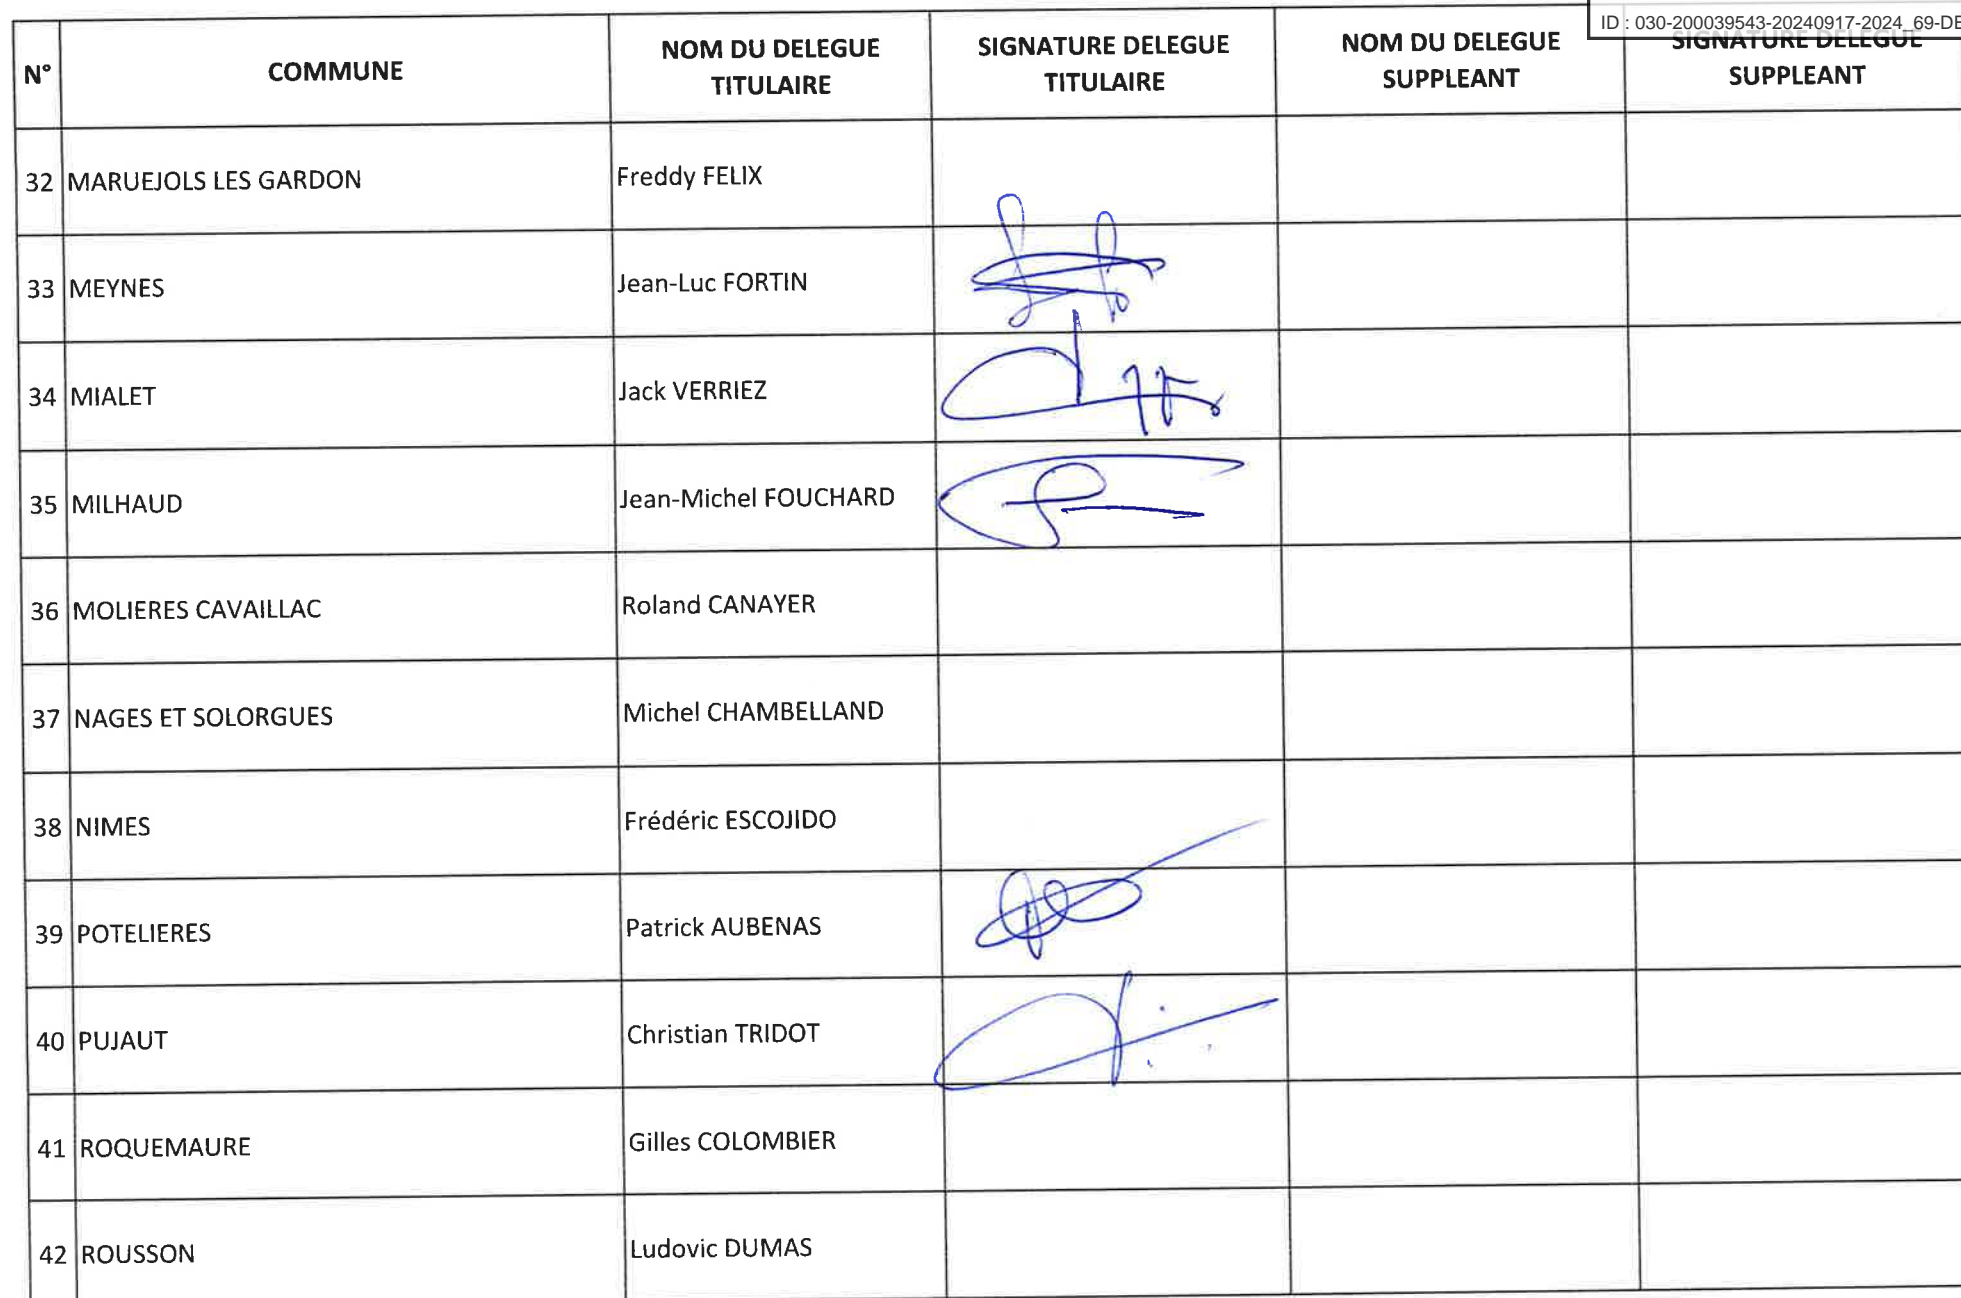 ID : 030-200039543-20240917-2024_69-DE
N°
COMMUNE
NOM DU DELEGUE
TITULAIRE
SIGNATURE DELEGUE
TITULAIRE
NOM DU DELEGUE
SUPPLEANT
SIGNATURE DELEGUE
SUPPLEANT
32 MARUEJOLS LES GARDON Freddy FELIX
33 MEYNES Jean-Luc FORTIN
34 MIALET Jack VERRIEZ
35 MILHAUD Jean-Michel FOUCHARD
36 MOLIERES CAVAILLAC Roland CANAYER
37 NAGES ET SOLORGUES Michel CHAMBELLAND
38 NIMES Frédéric ESCOJIDO
39 POTELIERES Patrick AUBENAS
40 PUJAUT Christian TRIDOT
41 ROQUEMAURE Gilles COLOMBIER
42 ROUSSON Ludovic DUMAS